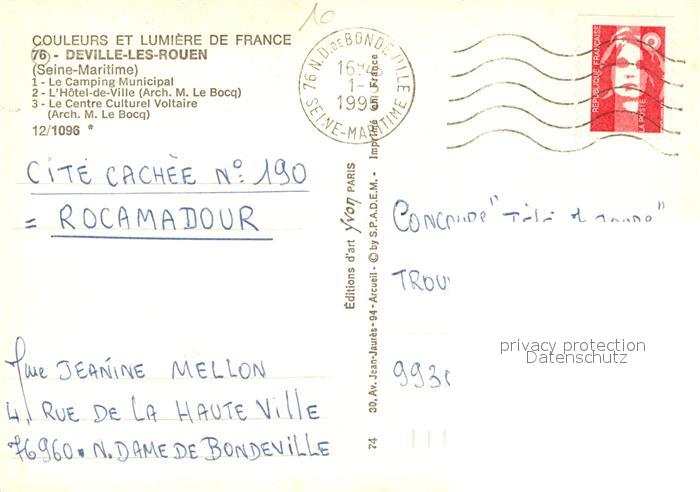 COULEURS ET LUMIÈRE DE FRANCE
76 - DEVILLE-LES-ROUEN
(Seine-Maritime)
1 - Le Camping Municipal
2 - L'Hôtel-de-Ville (Arch. M. Le Bocq)
3 - Le Centre Culturel Voltaire
(Arch. M. Le Bocq)
12/1096 *
10
76 N.D. DE BONDEVILLE
16H45
1-
199
SEINE-MARITIME
RÉPUBLIQUE FRANÇAISE
LA POSTE
CITÉ CACHÉE N° 190
= ROCAMADOUR
Mme JEANINE MELLON
4, RUE DE LA HAUTE VILLE
76960 • N. DAME DE BONDEVILLE
Éditions d'art yvon PARIS
74 30, Av. Jean-Jaurès - 94 - Arcueil - © by S.P.A.D.E.M. - Imprimé en France
CONCOURS "Télé 7 jours"
TROU
993
privacy protection
Datenschutz